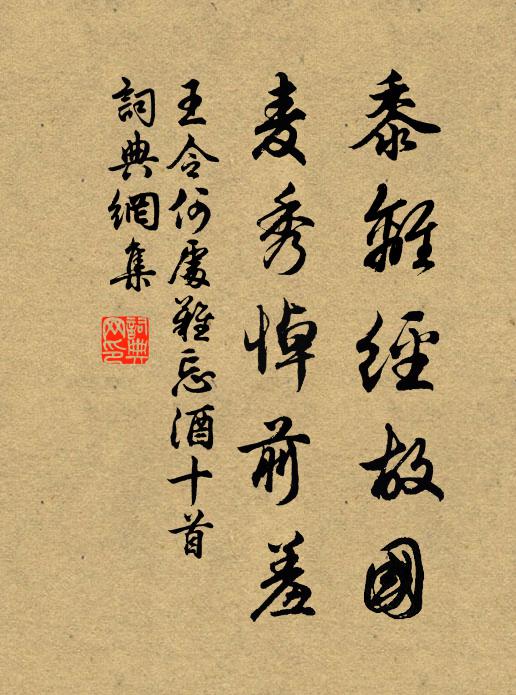 黍離經故國
麦秀悼前羞
王令何處難忘酒十首
詞典網集
詞典網印